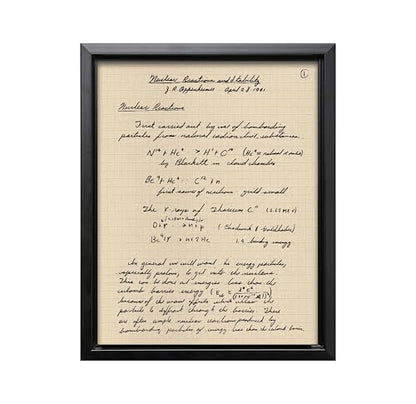 ①
Nuclear Reactions and Stability
J. R. Oppenheimer April 23 1941
Nuclear Reactions
First carried out by use of bombarding
particles from natural radioactive substances.
N¹⁴ + He⁴ → H¹ + O¹⁷ (He⁴ = natural α rays)
by Blackett in cloud chamber
Be⁹ + He⁴ → C¹² + n
first source of neutrons yield small
The γ-rays of Thorium C" (2.62 MeV)
D + γ → n + p (Chadwick & Goldhaber)
Be⁹ + γ → n + 2He binding energy
In general we will want the energy particles,
especially protons, to get into the nucleus.
This can be done at energies less than the
coulomb barrier energy
because of the wave nature which allow the
particle to diffract through the barrier. There
are often simple nuclear reactions produced by
bombarding particles of energy less than the coulomb barrier.